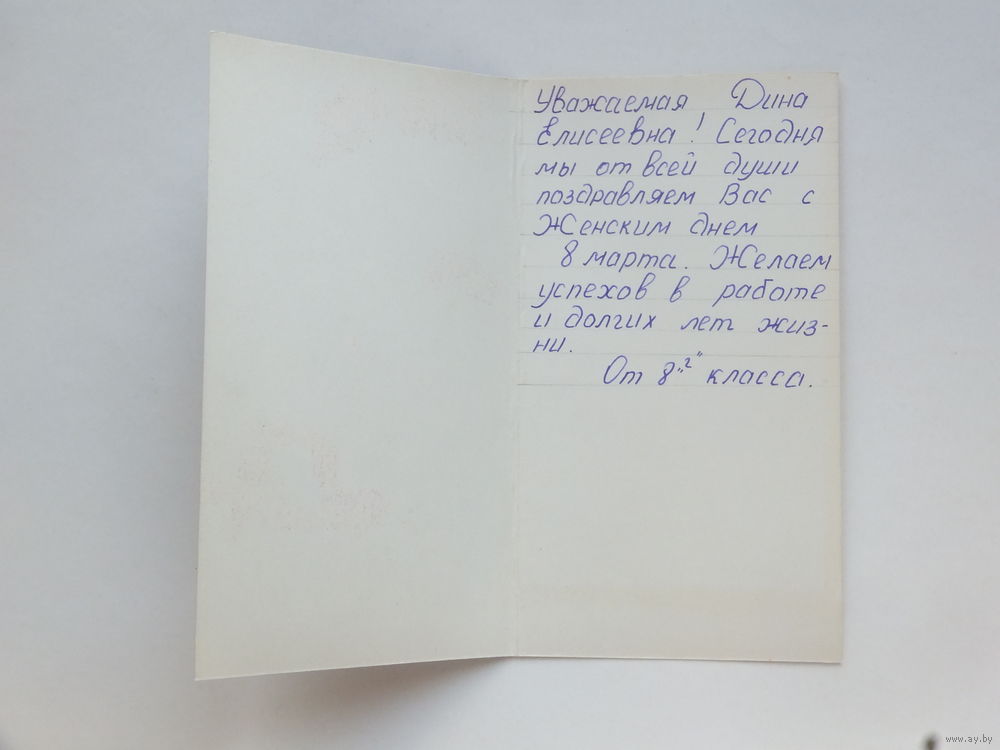 Уважаемая Дина
Елисеевна! Сегодня
мы от всей души
поздравляем Вас с
Женским днем
8 марта. Желаем
успехов в работе
и долгих лет жиз-
ни.
От 8 „г" класса.
www.ay.by